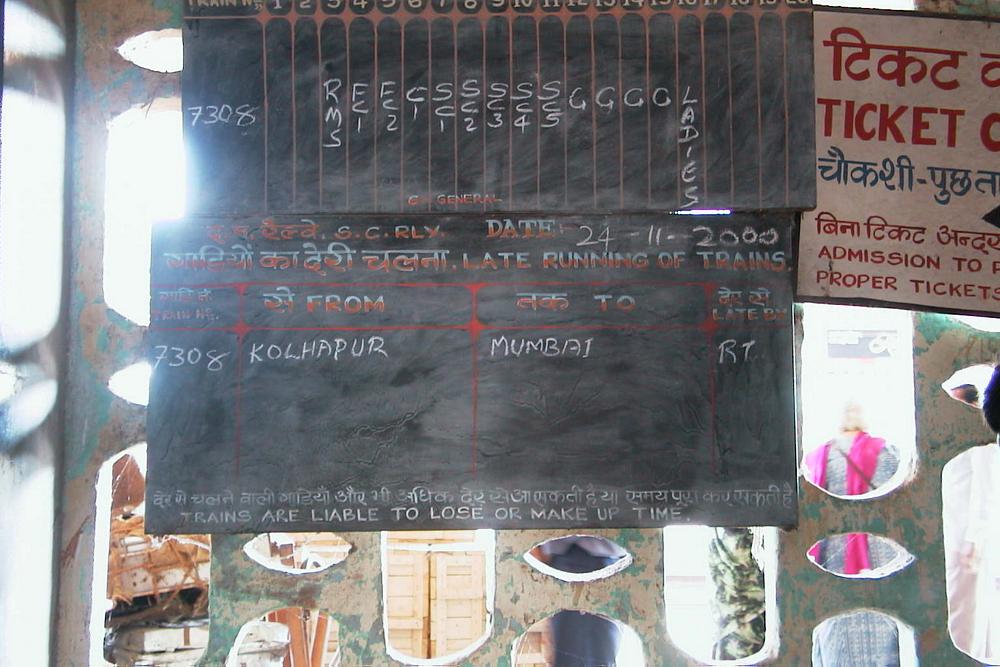 TRAIN No. 1 2 3 4 5 6 7 8 9 10 11 12 13 14 15 16 17 18 19 20
7308 RMS FC1 FC2 C1 SC1 SC2 SC3 SC4 SC5 G G G G LADIES
G GENERAL
द.म. रेल्वे. S.C.RLY. DATE:- 24-11-2000
गाडियों का देरी चलना. LATE RUNNING OF TRAINS.
गाडि नं. से FROM तक TO देर से
TRAIN No. LATE BY
7308 KOLHAPUR MUMBAI RT.
देर से चलने वाली गाडियाँ और भी अधिक देर से आ सकती है या समय पूरा कर सकती है
TRAINS ARE LIABLE TO LOSE OR MAKE UP TIME.
टिकट
TICKET
चौकशी-पुछता
बिना टिकट
ADMISSION TO
PROPER TICKETS